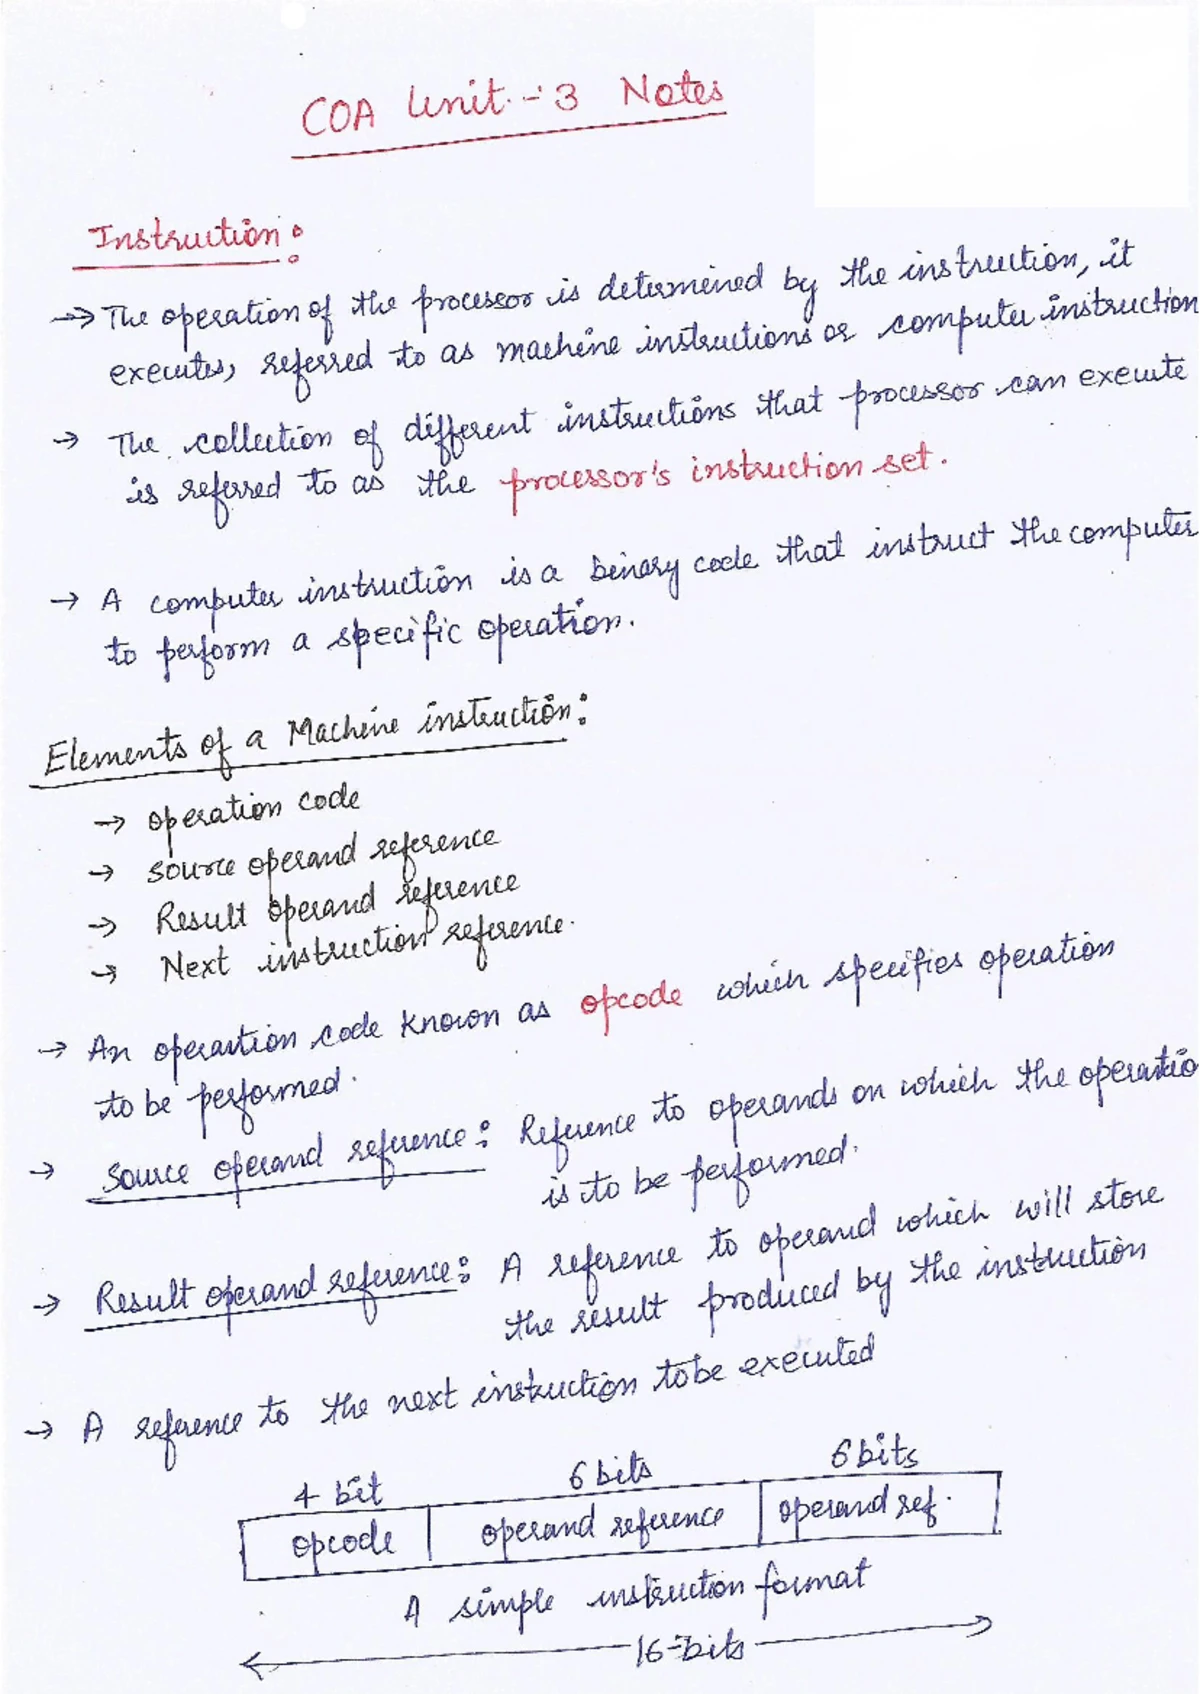 COA Unit - 3 Notes
Instruction:
→ The operation of the processor is determined by the instruction, it
executes, referred to as machine instructions or computer instruction
→ The collection of different instructions that processor can execute
is referred to as the processor's instruction set.
→ A computer instruction is a binary code that instruct the computer
to perform a specific operation.
Elements of a Machine instruction:
→ operation code
→ source operand reference
→ Result operand reference
→ Next instruction reference.
→ An operation code known as opcode which specifies operation
to be performed.
→ Source operand reference: Reference to operands on which the operatio
is to be performed.
→ Result operand reference: A reference to operand which will store
the result produced by the instruction
→ A reference to the next instruction to be executed
4 bit 6 bits 6 bits
opcode operand reference operand ref.
A simple instruction format
16-bits